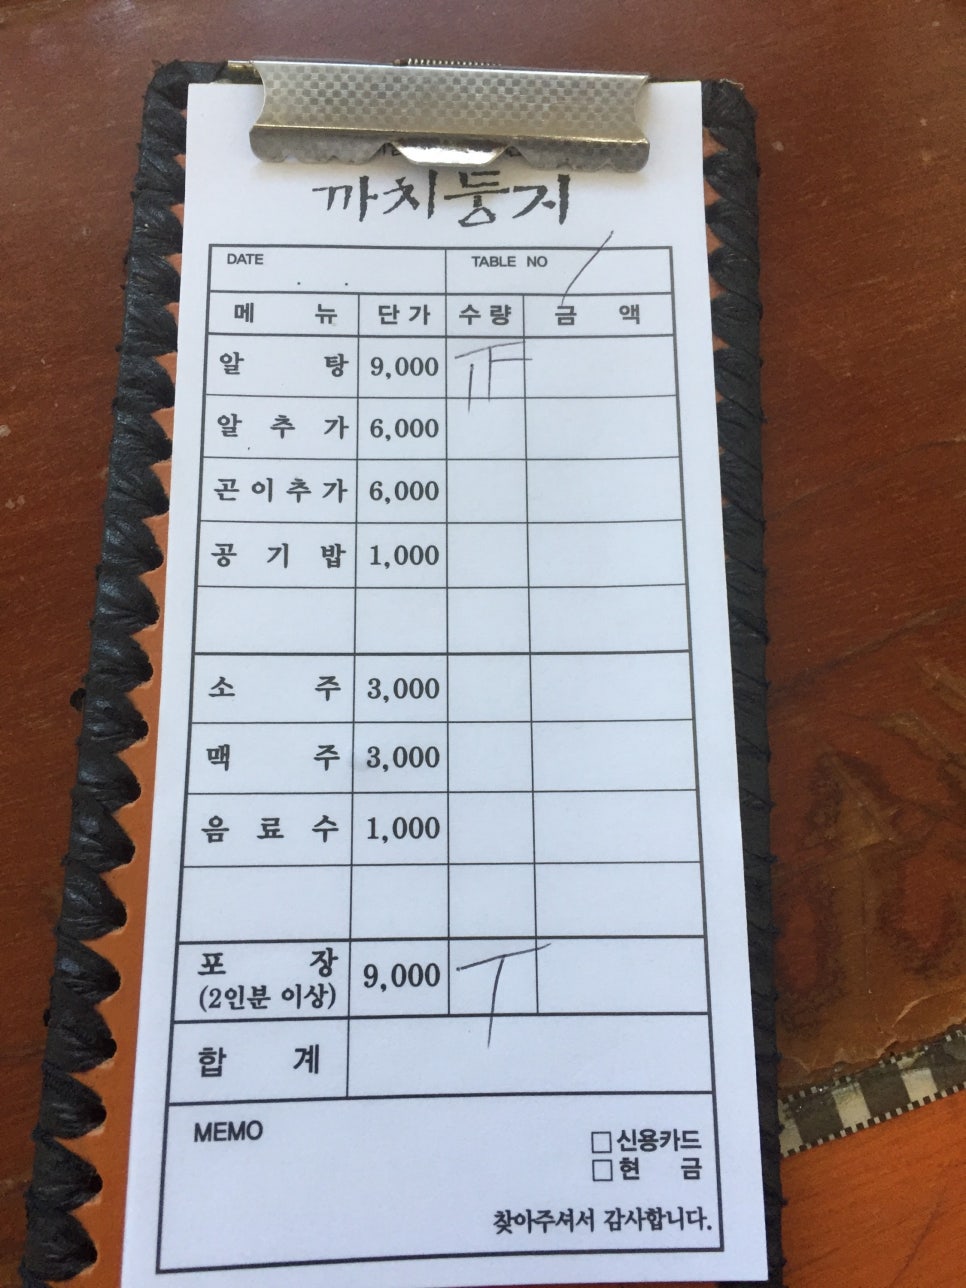 까치둥지
DATE . . TABLE NO /
메 뉴 단가 수량 금 액
알 탕 9,000
알 추 가 6,000
곤이추가 6,000
공 기 밥 1,000
소 주 3,000
맥 주 3,000
음 료 수 1,000
포 장 9,000 T
(2인분 이상)
합 계
MEMO
□ 신용카드
□ 현 금
찾아주셔서 감사합니다.